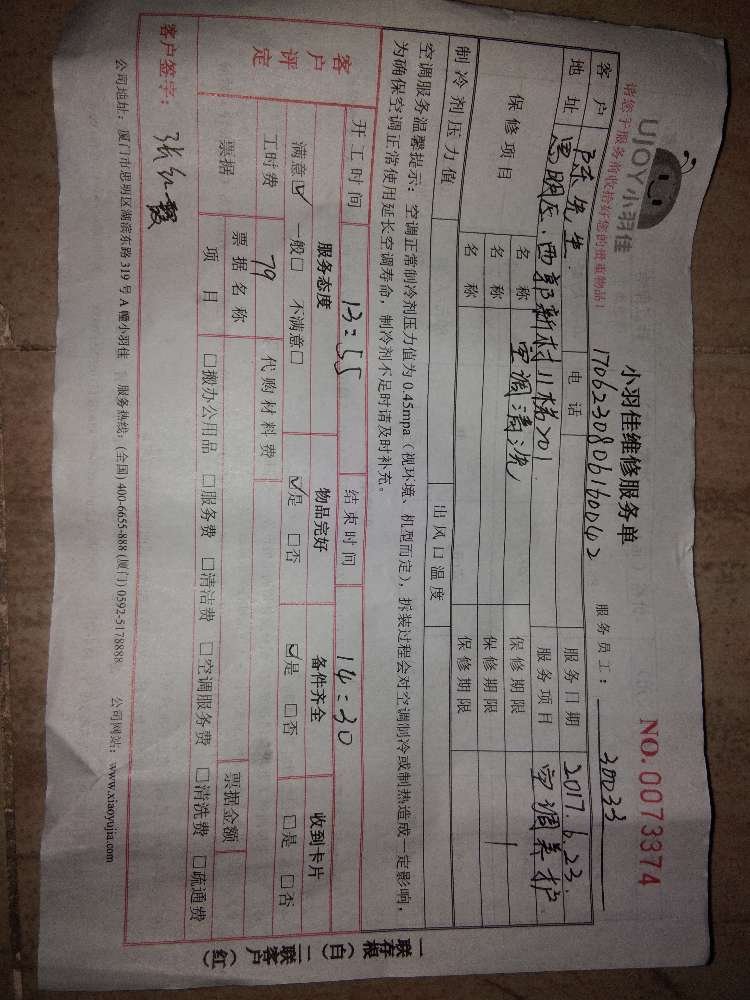 UJOY小羽佳
请您于服务前收拾好您的贵重物品！
小羽佳维修服务单
NO.0073374
1706230806160042
服务员工： 30033
客户 陈先生 电话 服务日期 2017.6.23.
地址 思明区.西郭新村11梯701 服务项目 空调养护
保修项目 名称 空调清洗 保修期限
名称 保修期限
名称 保修期限
制冷剂压力值 出风口温度
空调服务温馨提示：空调正常制冷剂压力值为0.45mpa（视环境、机型而定），拆装过程会对空调制冷或制热造成一定影响，
为确保空调正常使用延长空调寿命，制冷剂不足时请及时补充。
开工时间 13:55 结束时间 14:30
客户评定 服务态度 物品完好 备件齐全 收到卡片
满意☑ 一般□ 不满意□ ☑是 □否 ☑是 □否 □是 □否
工时费 79 代购材料费
票据 票据名称 票据金额
项目 □搬办公用品 □服务费 □清洁费 □空调服务费 □清洗费 □疏通费
客户签字：
公司地址：厦门市思明区湖滨东路319号A幢小羽佳 服务热线：(全国)400-6655-888 (厦门)0592-5178888 公司网站：www.xiaoyujia.com
一联存根（白） 二联客户（红）